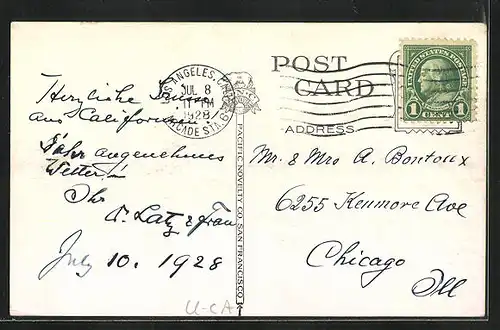 POST
CARD
ADDRESS
LOS ANGELES, CALIF.
JUL 8
11 PM
1928
ARCADE STA.
UNITED STATES POSTAGE
1 CENT 1
PACIFIC NOVELTY CO. SAN FRANCISCO
Herzliche Grüsse
aus Californien
Sehr angenehmes
Wetter
Ihr
Latz & Frau
July 10. 1928
Mr. & Mrs A. Bontoux
6255 Kenmore Ave
Chicago
Ill
U-CA